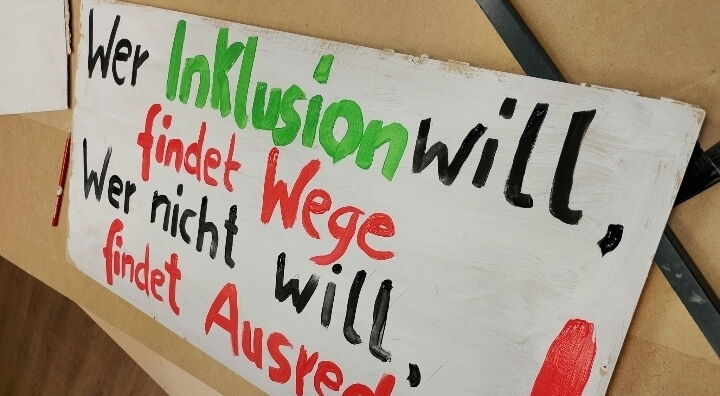 Wer Inklusion will,
findet Wege
Wer nicht will,
findet Ausred